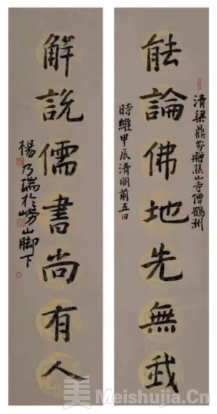 能論佛地先無我
清梁鼎芬贈焦山寺僧鶴洲
時維甲辰清明前五日
解說儒書尚有人
楊乃瑞於嶗山腳下
美 Meishujia.Cn